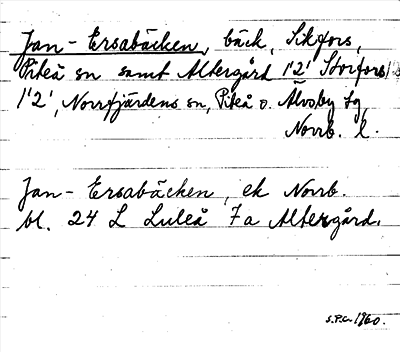 Jan-Ersabäcken, bäck, Sikfors,
Piteå sn samt Altergård 1'2' Storfors
1'2', Norrfjärdens sn, Piteå o. Älvsby tg
Norrb. l.
Jan-Ersabäcken, ek Norrb.
bl. 24 L Luleå 7a Altergård.
S.P.C. 1960.